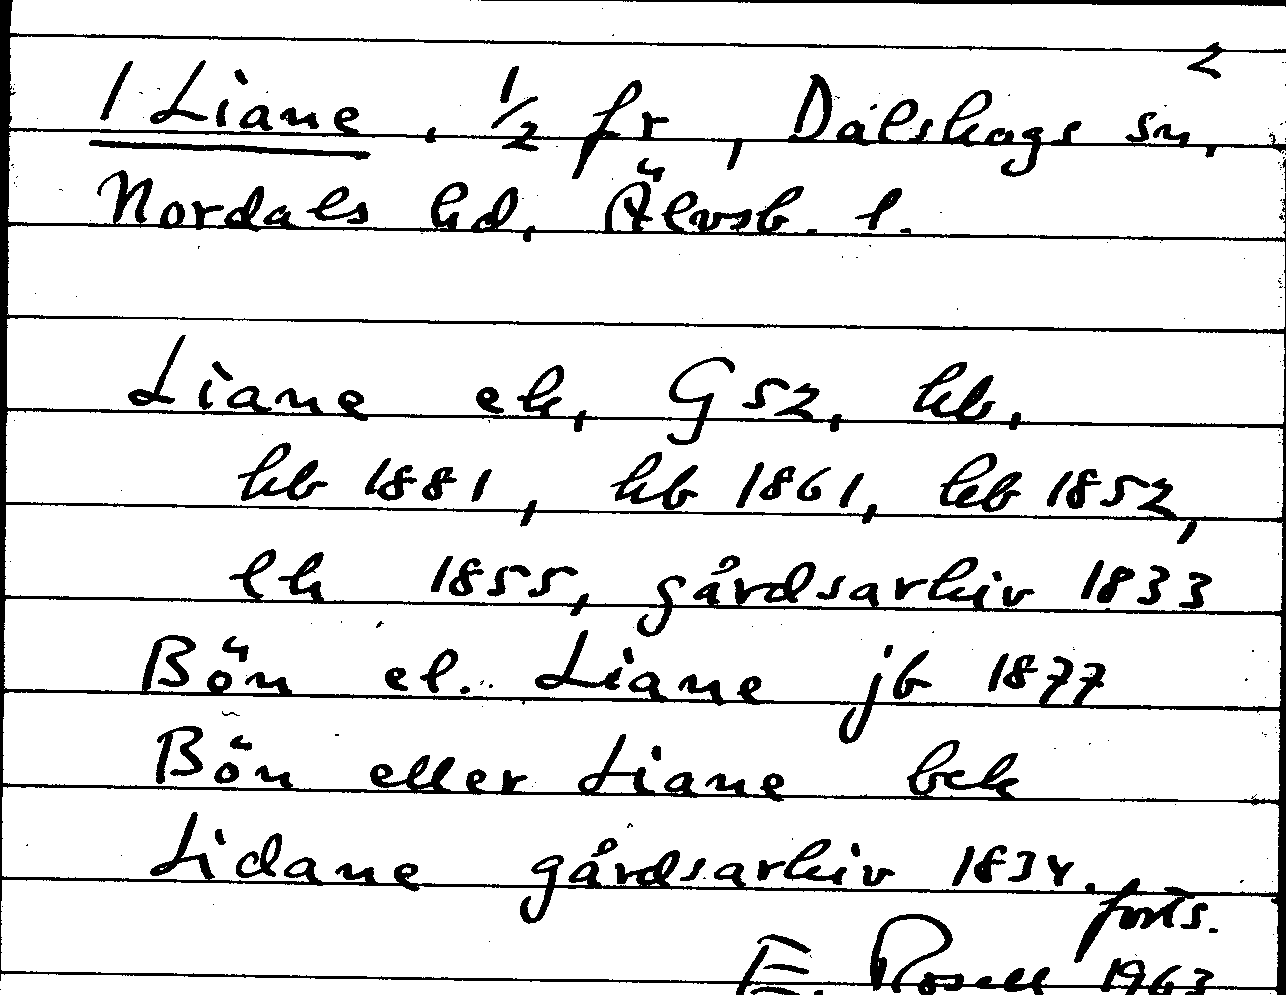 2
1 Liane, 1/2 fr, Dalskogs sn,
Nordals hd, Älvsb. l.
Liane ek, G 52, hb,
hb 1881, hb 1861, hb 1852,
lh 1855, gårdsarkiv 1833
Bön el. Liane jb 1877
Bön eller Liane bek
Lidane gårdsarkiv 1834.
forts.
E. Rosell 1963